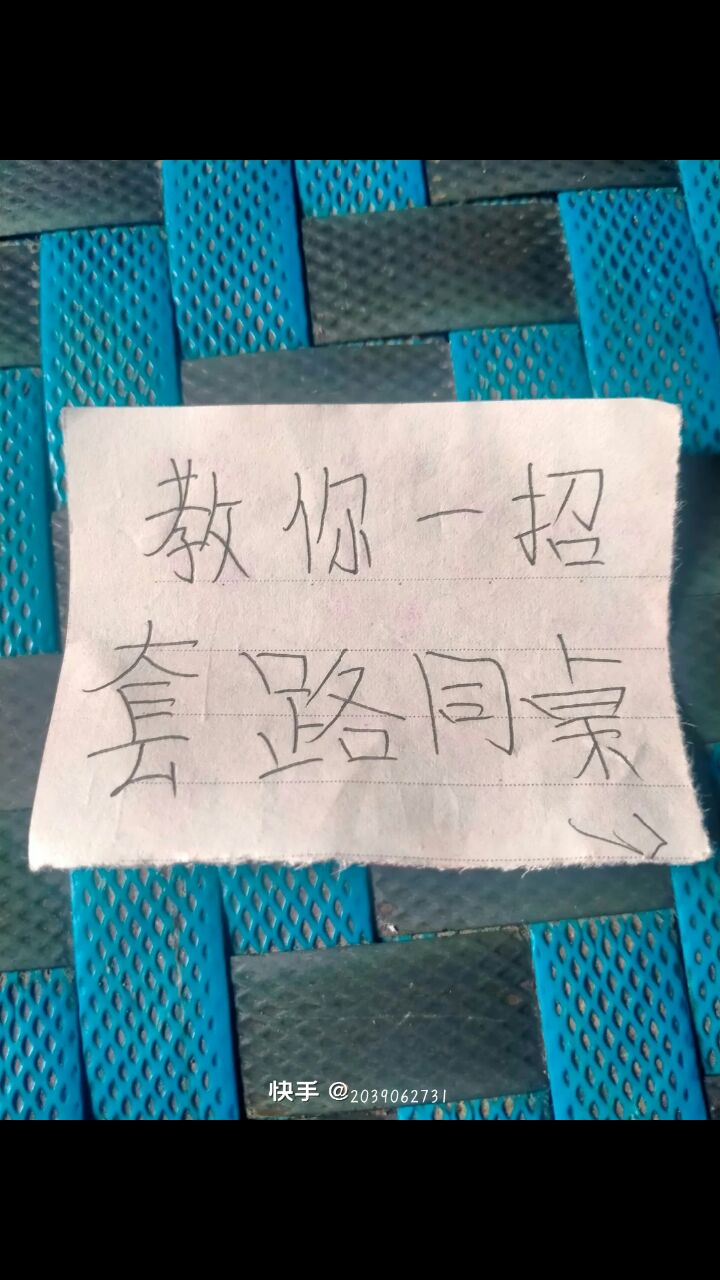 教你一招
套路同桌
快手 @2039062731